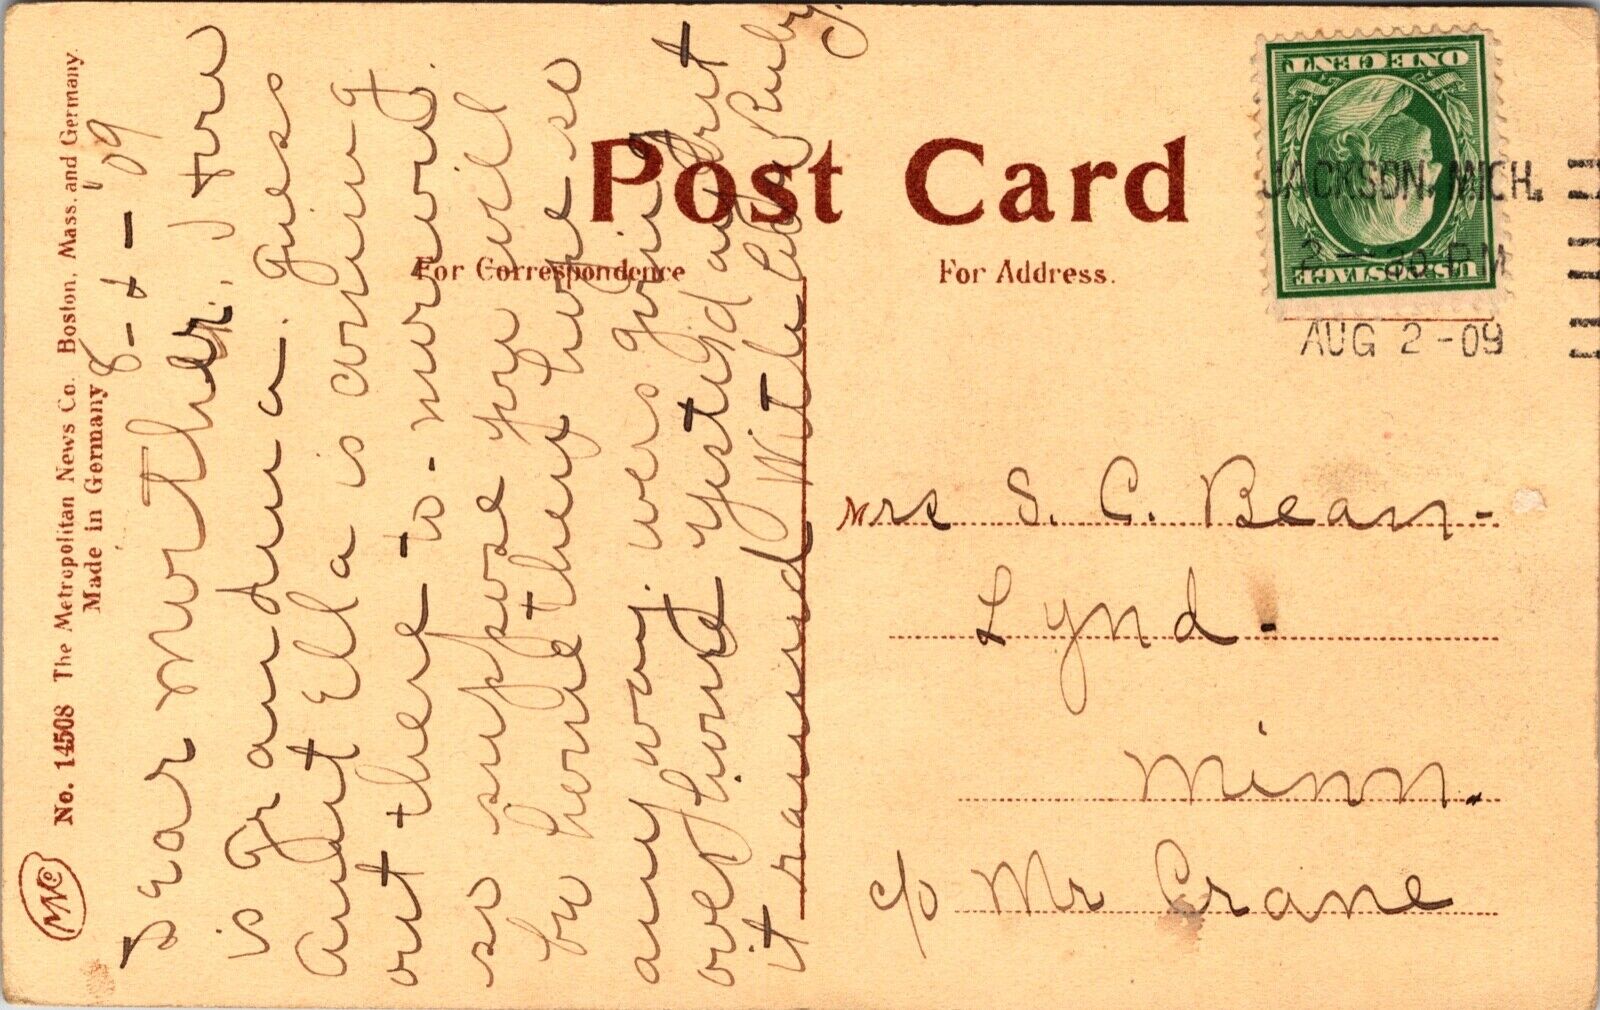 No. 14508 The Metropolitan News Co. Boston, Mass. and Germany.
Made in Germany
MNCo
8-2-'09
Dear Mother, How
is Grandma. Guess
Aunt Ella is coming
out there to-morrow.
so suppose you will
be home then hope so
any way. was going
over home yestyd but
it rained With love Ruby.
Post Card
For Correspondence
For Address.
ONE CENT
U.S. POSTAGE
JACKSON, MICH.
2 - 30 PM
AUG 2 - 09
Mrs S. C. Bean-
Lynd-
Minn.
c/o Mr Crane